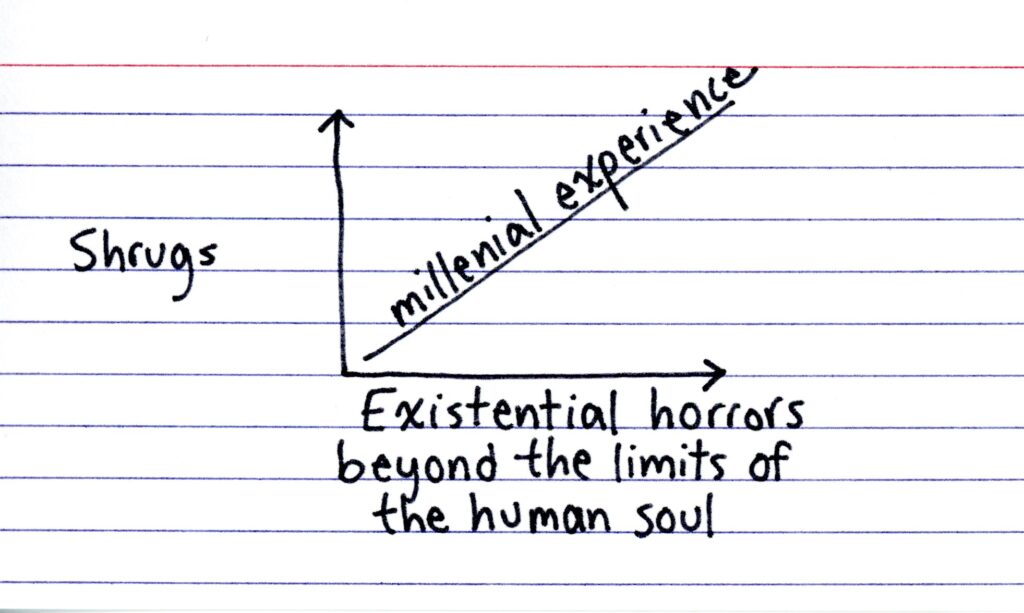 millenial experience
Shrugs
Existential horrors
beyond the limits of
the human soul